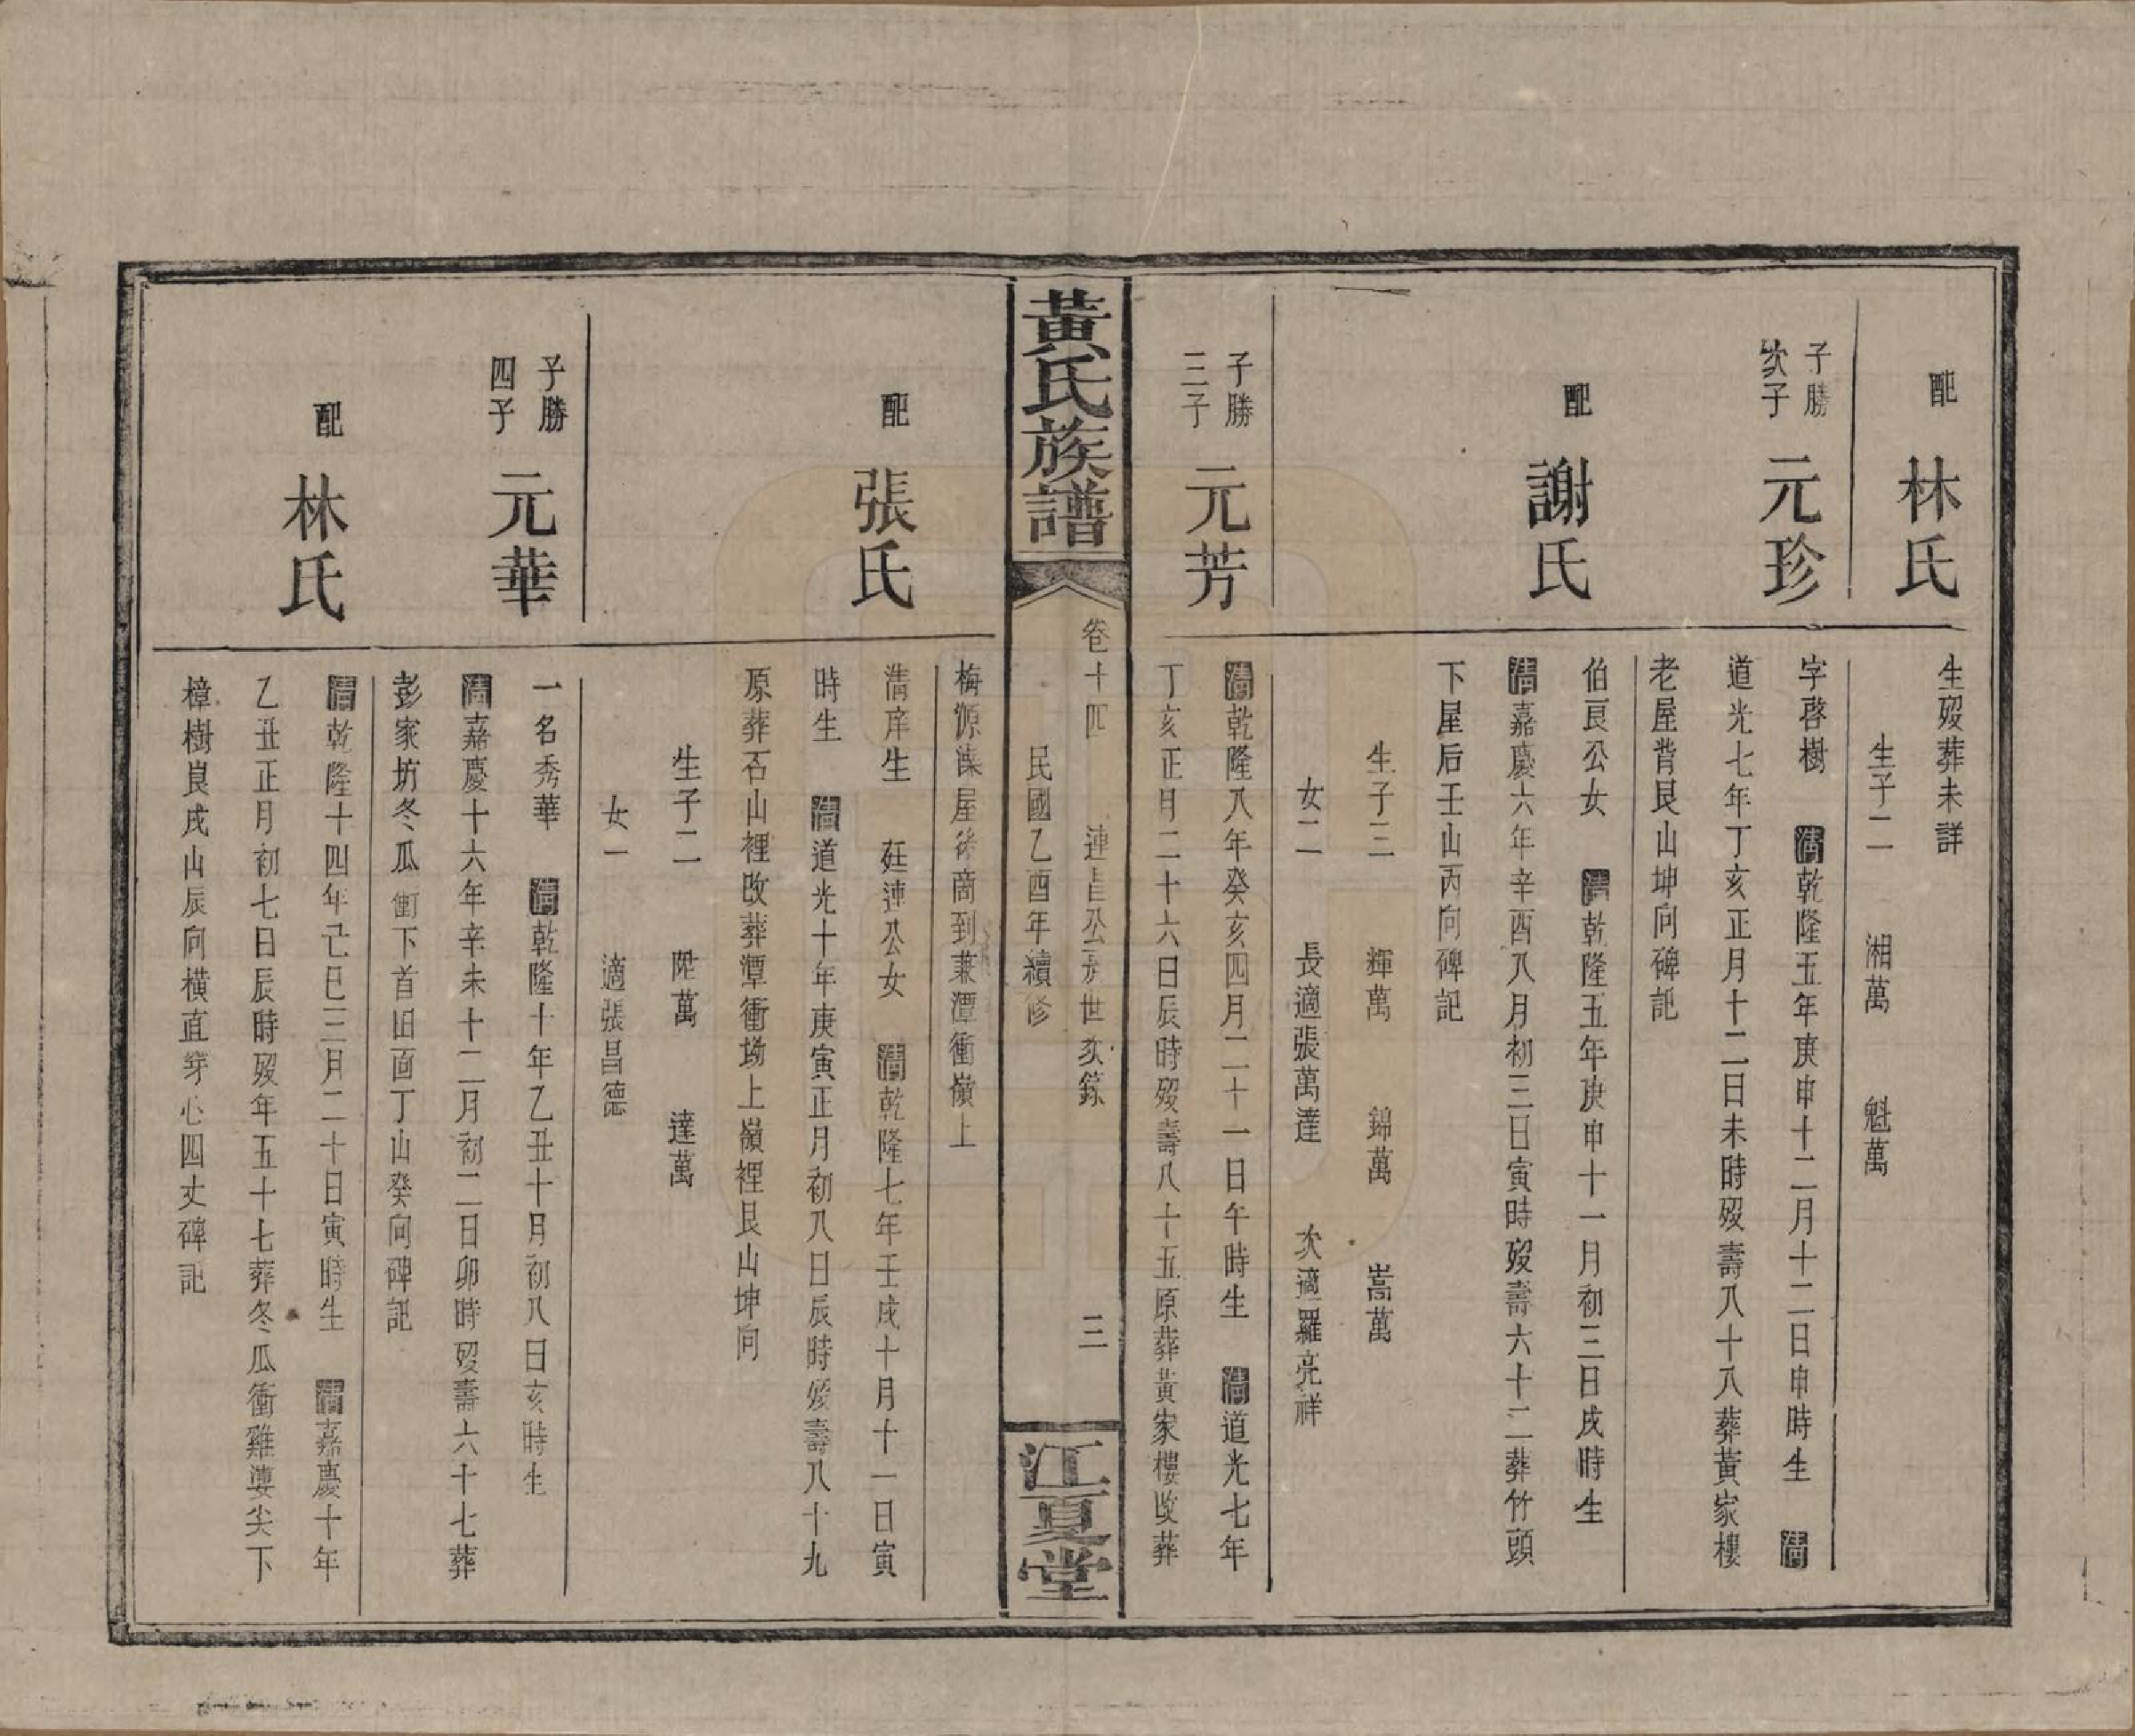 配 林氏
生歿葬未詳
生子二 湘萬 魁萬
子勝
次子
元珍
字啓樹 清乾隆五年庚申十二月十二日申時生 清
道光七年丁亥正月十二日未時歿壽八十八葬黃家樓
老屋背艮山坤向碑記
配 謝氏
伯良公女 清乾隆五年庚申十一月初三日戌時生
清嘉慶六年辛酉八月初三日寅時歿壽六十二葬竹頭
下屋后壬山丙向碑記
生子三 輝萬 錦萬 嵩萬
女二 長適張萬達 次適羅亮祥
子勝
三子
元芳
清乾隆八年癸亥四月二十一日午時生 清道光七年
丁亥正月二十六日辰時歿壽八十五原葬黃家樓改葬
黃氏族譜
卷十四 連昌公房世系錄 三
民國乙酉年續修
江夏堂
梅源漆屋後崗到萊潭衝嶺上
配 張氏
清庠生 廷連公女 清乾隆七年壬戌十月十一日寅
時生 清道光十年庚寅正月初八日辰時歿壽八十九
原葬石山裡改葬潭衝坳上嶺裡艮山坤向
生子二 陞萬 達萬
女一 適張昌德
子勝
四子
元華
一名秀華 清乾隆十年乙丑十月初八日亥時生
清嘉慶十六年辛未十二月初二日卯時歿壽六十七葬
彭家坊冬瓜衝下首旧面丁山癸向碑記
配 林氏
清乾隆十四年己巳三月二十日寅時生 清嘉慶十年
乙丑正月初七日辰時歿年五十七葬冬瓜衝雞婆尖下
樟樹崀戌山辰向橫直穿心四丈碑記